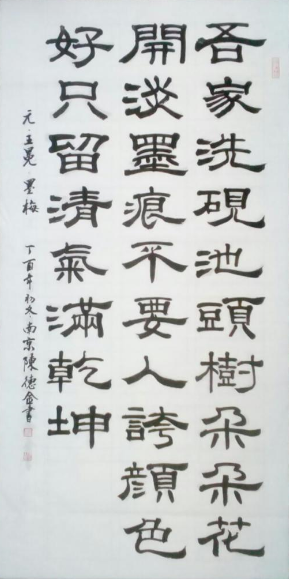 吾家洗硯池頭樹朵朵花
開淡墨痕不要人誇顔色
好只留清氣滿乾坤
元·王冕 墨梅 丁酉年初冬·南京陳德書